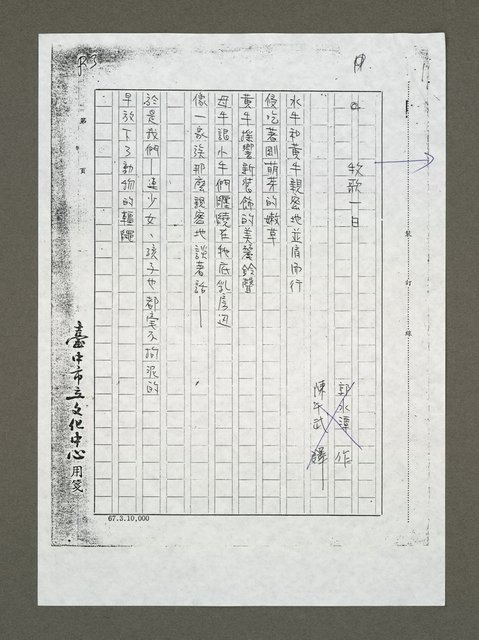 牧歌一日
郭水潭 作
陳千武 譯
水牛和黃牛親密地並肩而行
侵吃著剛萌芽的嫩草
黃牛搖響新裝飾的美麗鈴聲
母牛讓小牛們纏繞在牠底乳房邊
像一家族那麼親密地談著話——
於是我們——連少女、孩子也都毫不拘泥的
早放下了動物的韁繩
臺中市立文化中心用箋
第 頁
裝 訂 線
67.3.10,000